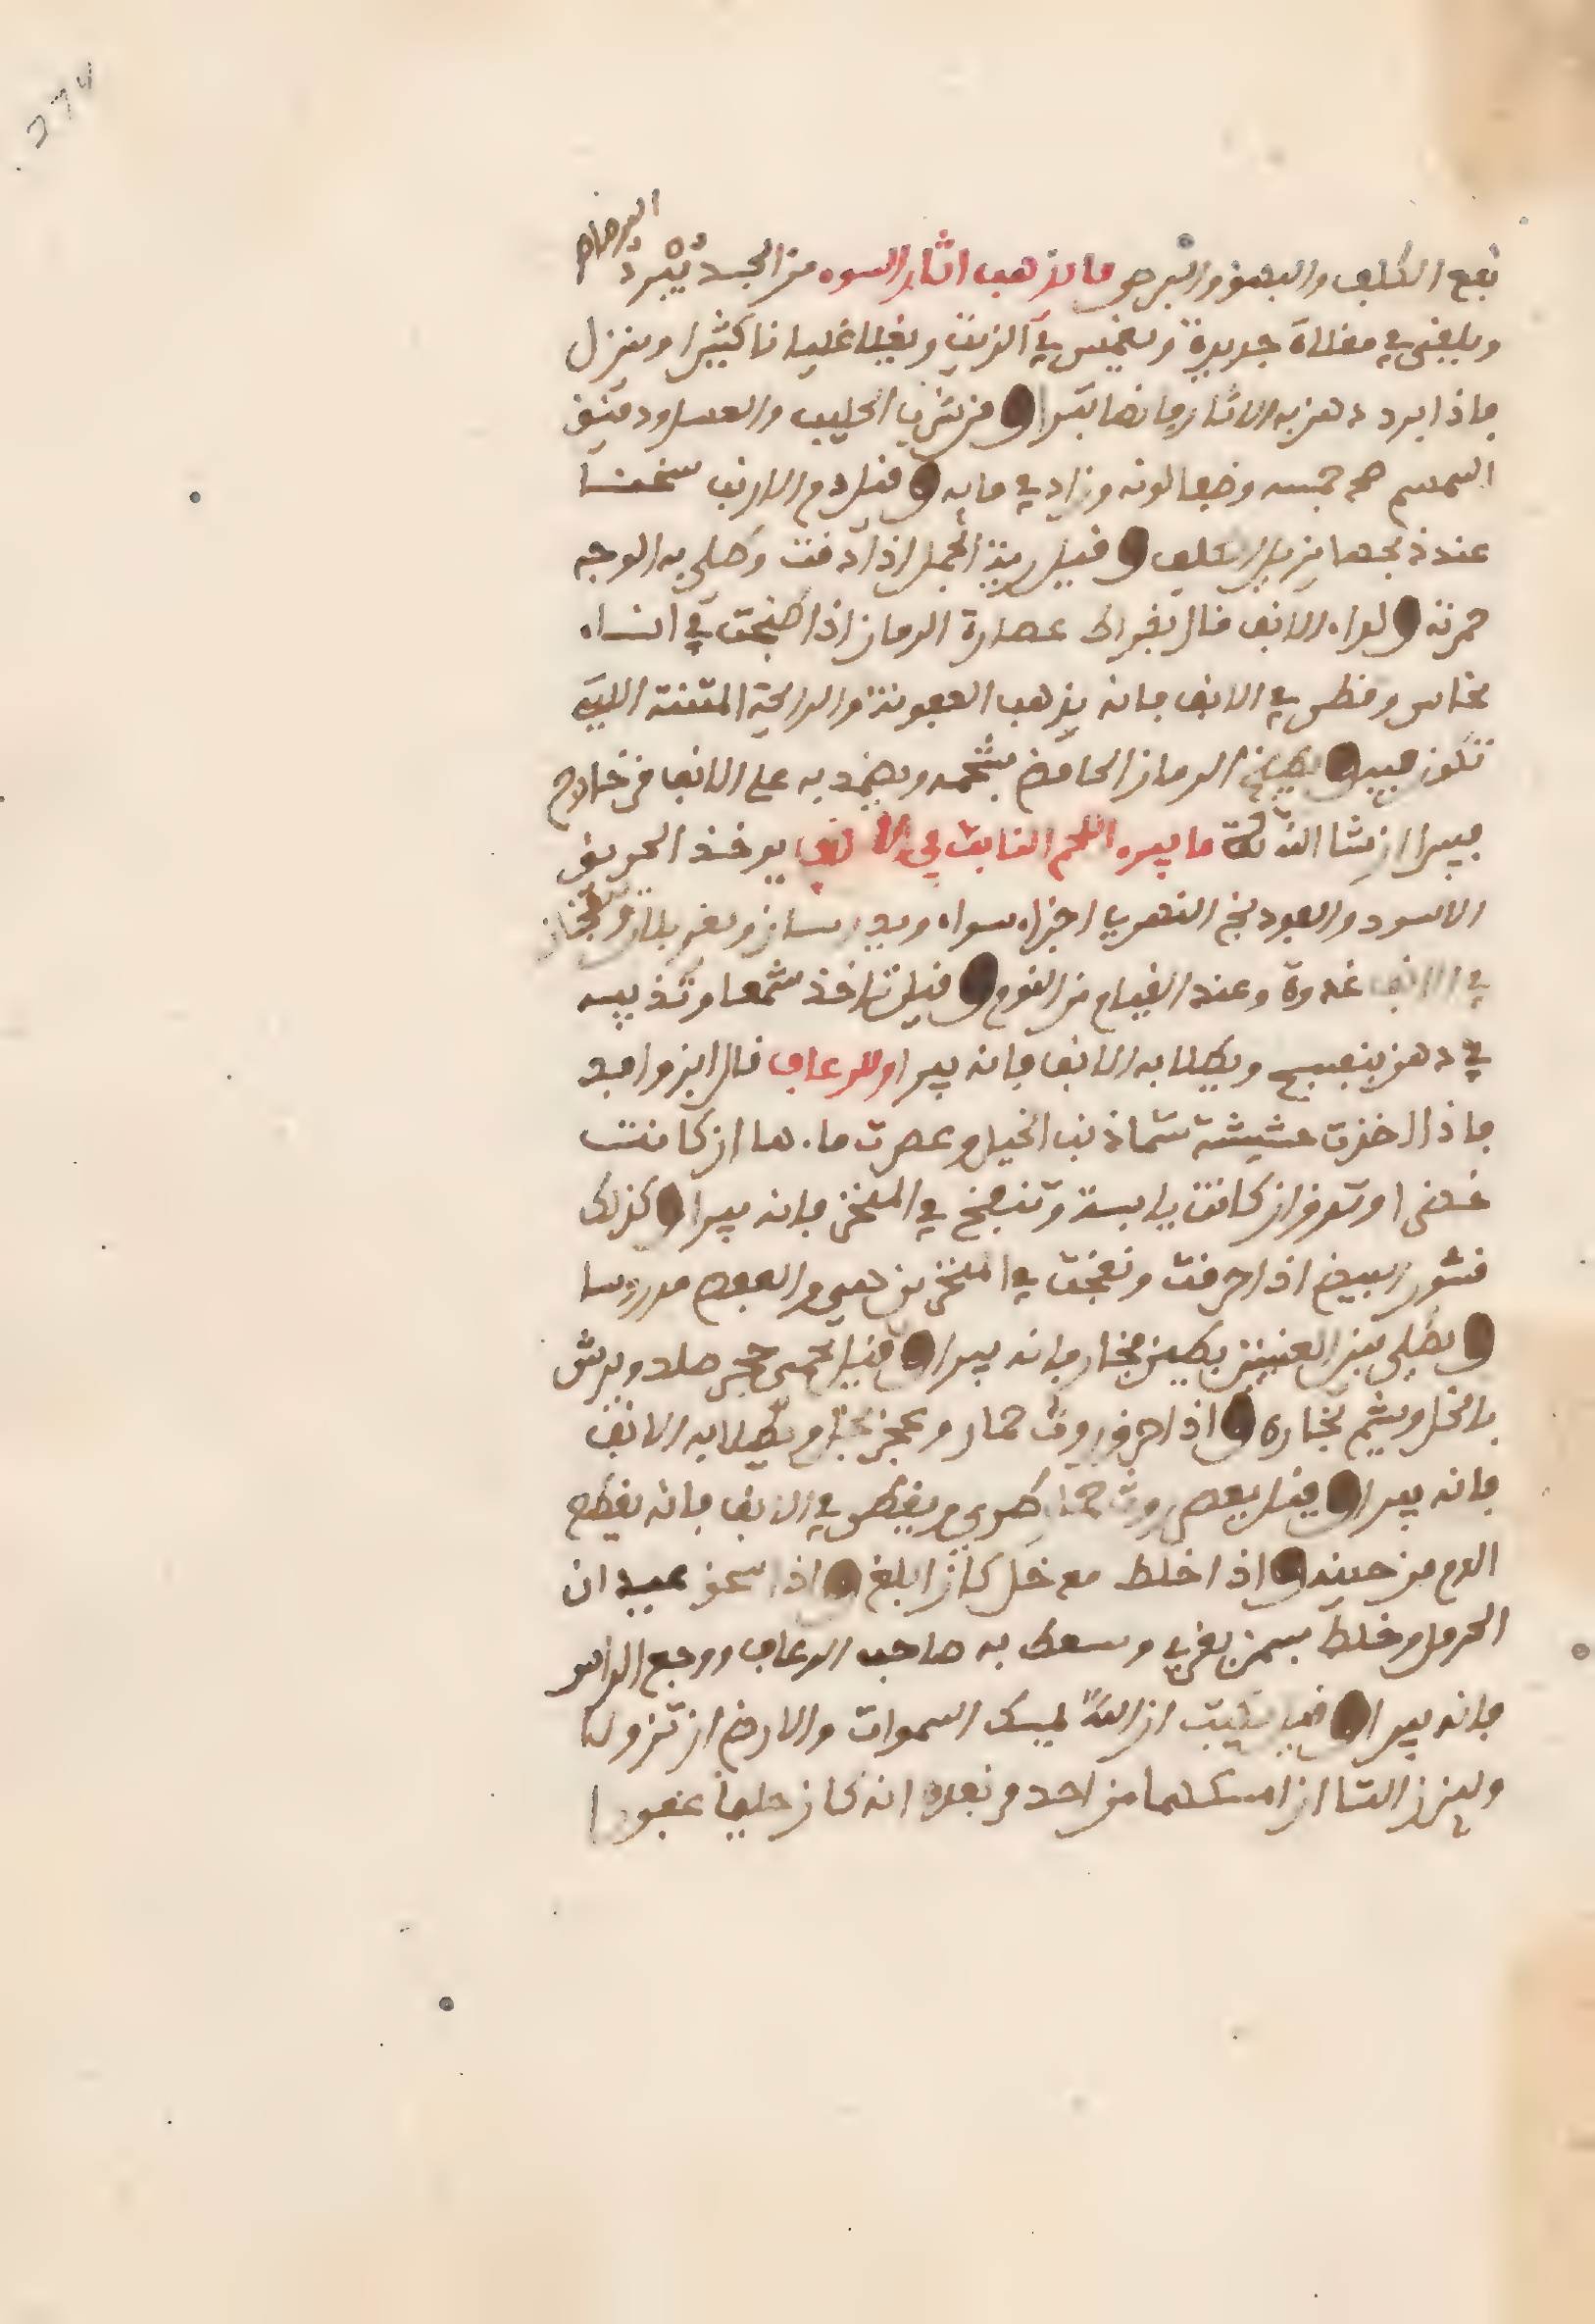 نفع الكلف والبهق والبرص ما يذهب اثار السوء من الجسد يبرد الرصاص
ويلقى في مقلاة جديدة ويغمس في الزيت ويغلا غليانا كثيرا وينزل
فاذا برد دهن به الاثار فانها تبرا ومن شرب الحليب والعسل ودقيق
السمسم جسمه وصفا لونه وزاد في مايه وقيل دم الارنب سخنا
عند ذبحها يزيل الكلف وقيل ريۃ الجمل اذا دقت وطلي به الوجه
حمرته ولداء الانف قال بقراط عصارة الرمان اذا طبخت في اناء
نحاس وقطر في الانف فانه يذهب العفونة والرايحة المنتنة التي
تكون فيه ويطبخ الرمان الحامض بشحمه ويضمد به على الانف من خارج
يبرا ان شا الله ما يبرء اللحم النابت في الانف يوخذ الحريف
الاسود والعود اجزاء سواء ويدرسان ويغربلان
في الانف غدوة وعند القيام من النوم وقيل تاخذ شمعا وتذيبه
في دهن بنفسج ويطلا به الانف فانه يبرا وللرعاف قال ابن وافد
فاذا اخذت حشيشة تسما ذنب الخيل وعصرت ماءها ان كانت
خضرا وتدق ان كانت يابسة وتنفخ في المنخر فانه يبرا وكذلك
قشور البيض اذا احرقت ونفخت في المنخرين هي والعفص مدروسا
ويطلي بين العينين بطين فخار فانه يبرا وقيل يحمى حجر صلد ويرش
بالخل ويشم بخاره واذا احرق روث حمار وعجن بخل ويطلا به الانف
فانه يبرا وقيل يعصر روث حمار طري ويقطر في الانف فانه يقطع
الدم من حينه واذا خلط مع خل كان ابلغ واذا سحق عيدان
الحرمل وخلط بسمن بقري وسعط به صاحب الرعاف ووجع الراس
فانه يبرا وقيل يكتب ان الله يمسك السموات والارض ان تزولا
ولين زالتا ان امسكهما من احد من بعده انه كان حليما غفورا